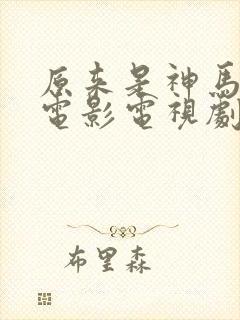 原来是神馬
電影電視劇
布里森